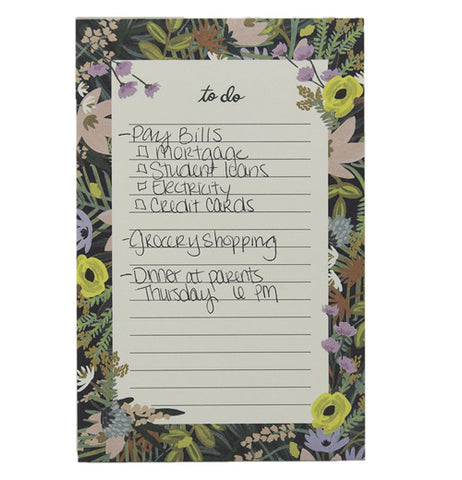 to do
-Pay Bills
□ Mortgage
□ Student loans
□ Electricity
□ Credit Cards
-Grocery Shopping
-Dinner at parents
Thursday 6 PM